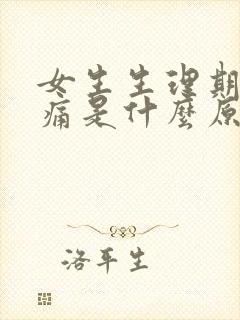 女生生理期
痛是什麼原
洛平生